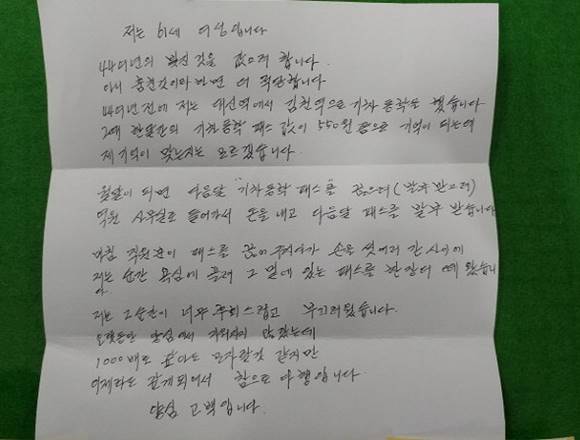 저는 61세 여성입니다
44여년의 빚진 것을 갚으려 합니다.
아니 훔친것이라 하면 더 적당합니다
44여년 전에 저는 대신역에서 김천역으로 기차 통학을 했습니다
그때 한달간의 기차통학 패스 값이 550원 쯤으로 기억이 되는데
제 기억이 맞는지는 모르겠습니다.
월말이 되면 다음달 기차통학 패스를 끊으러 (발부 받으려)
역원 사무실로 들어가서 돈을 내고 다음달 패스를 발부 받습니다
마침 직원분이 패스를 끊어 주시다가 손을 씻으러 간 사이에
저는 순간 욕심에 끌려 그 밑에 있는 패스를 한장 더 떼 왔습니
다.
저는 그순간이 너무 후회스럽고 부끄러웠습니다.
오랫동안 양심에서 지워지지 않았는데
1000배로 갚아도 모자랄것 같지만
이제라도 갚게되어서 참으로 다행입니다.
양심 고백입니다.